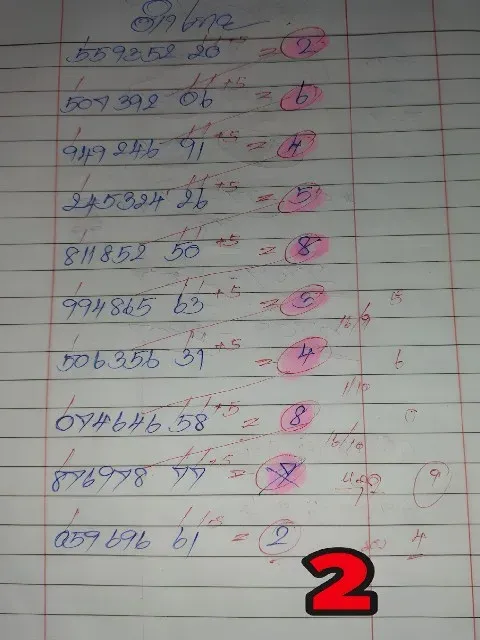 559352 20 +5 = 2
507392 06 +5 = 6
949246 91 +5 = 4
245324 26 +5 = 5
811852 50 +5 = 8
994865 63 +5 = 5
16/9
506356 31 +5 = 4 6
1/10
074646 58 +5 = 8
16/10
876978 77 +5 = 7 9
059696 61 +5 = 2 4
2